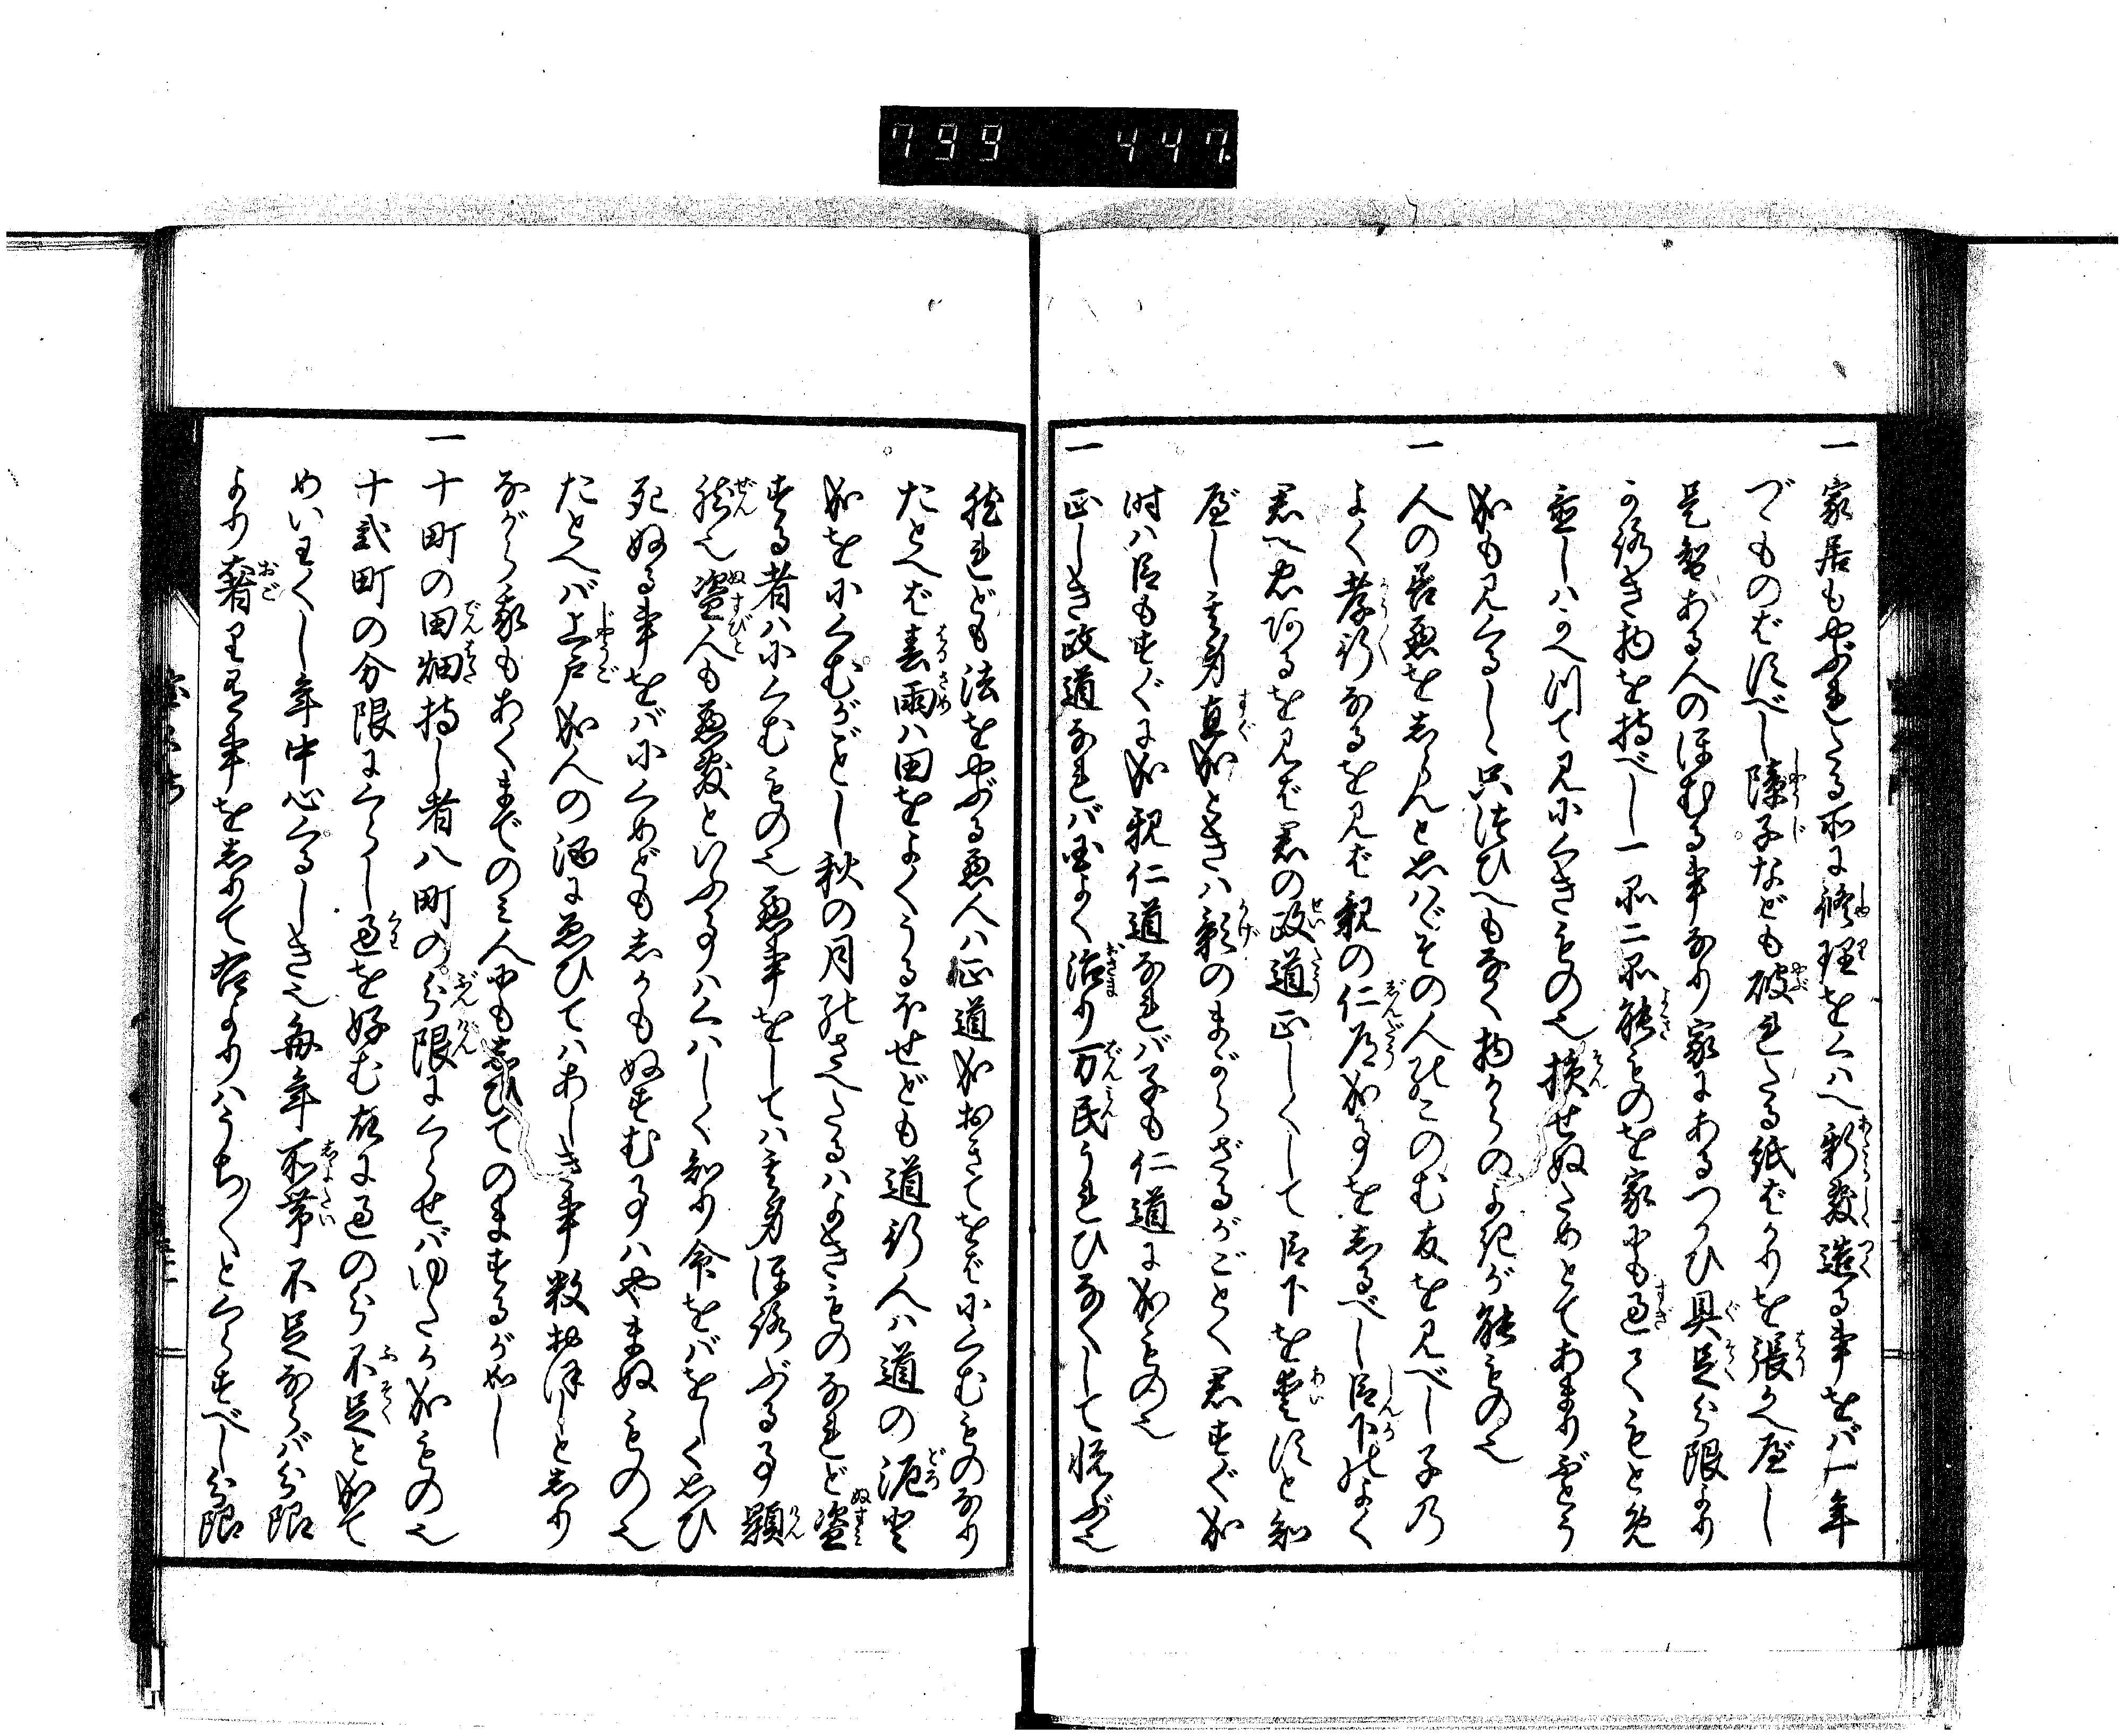 799 447
一 家居もやぶれたる所に修理をくはへ新敷造る事をバ一年
づゝものばすべし障子なども破れたる紙ばかりを張かへ置し
是智ある人のほむる事なり家にあるつかひ具足分限より
かろき物を持べし一不二不能ものを家にも過て
悪しハかへ川て見にくきもの也損せぬためとてあまりぶとう
なも見くるし只ついへもなく物からのよきが能もの也
一 人の善悪をしらんと思ハヾその人のこのむ友を見べし子乃
よく孝行なるを見ば親の仁道なる事をしるべし臣下のよく
君へ忠するを見ば君の政道正しくして臣下を愛すと知
べし其身直なるときハ影のまがらざるがごとく君すぐな
時ハ臣もすぐになり親仁道なれバ子も仁道になるもの也
一 正しき政道なれバ国よく治り万民うれひなくして悦ぶ也
然れども法をやぶる悪人ハ正道なるおきてをばにくむものなり
たとへば春雨ハ田をようるほせども道行人ハ道の泥と
なるをにくむがごとし秋の月のさへたるハよきものなれど盗
する者ハにくむもの也悪事をしてハ其身ほろぶる事顕
然也盗人も悪敷といふ事ハくハしく知り命をバをしく思ひ
死ぬる事をバにくめどもしかもぬすむ事ハやまぬもの也
たとへバ上戸なる人の酒に酔ひてハあしき事数おほしとしり
ながら我もあくまでのミ人にもしひてのまするが如し
一 十町の田畑持し者八町の分限にくらせバゆたかなるもの也
十弐町の分限にくらし過を好む故に過の分不足となりて
めいわくし年中心くるしき也毎年所帯不足ならバ分限
より奢りたる事をしりて右よりハうちゝくとくらすべし分限